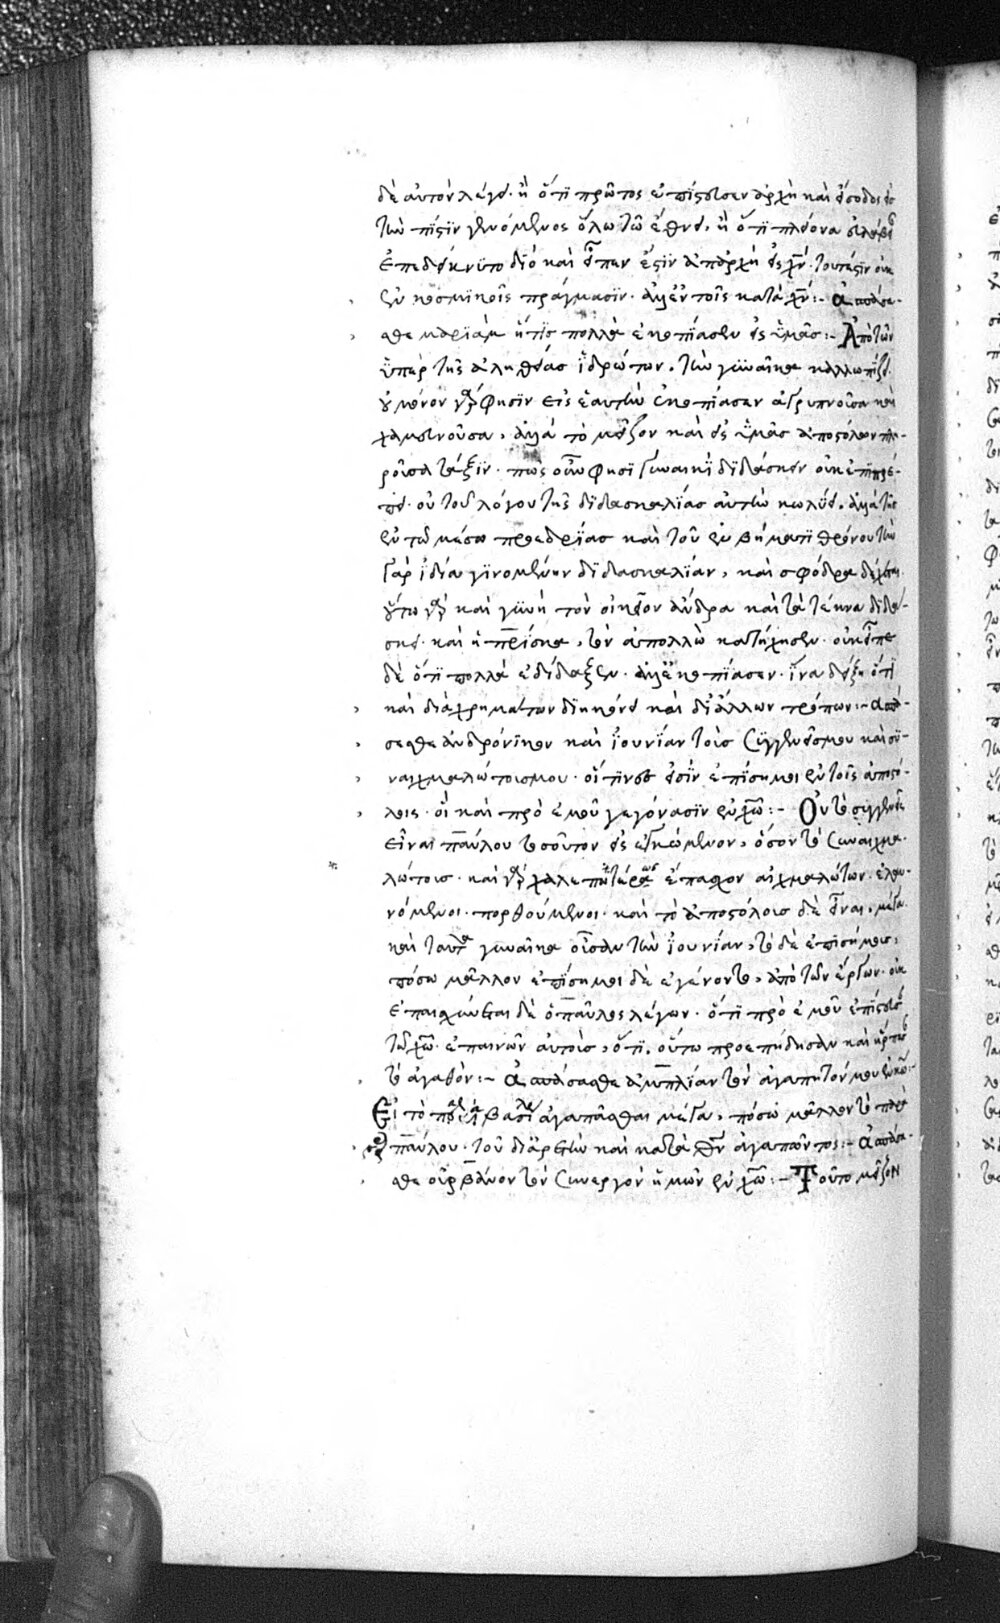 δὲ αὐτὸν λέγει· ἢ ὅτι πρῶτος ἐπίστευσεν ἀρχὴ καὶ εἴσοδος εἰς
τὴν πίστιν γενόμενος ὅλω τῶ ἔθνει, ἢ ὅτι πλείονα εὐλάβειαν
ἐπεδείκνυτο διὸ καὶ εἶπεν ἐστὶν ἀπαρχὴ εἰς χν· τουτέστιν οὐκ
ἐν κοσμικοῖς πράγμασιν· ἀλλ' ἐν τοῖς κατὰ χν:- ἀσπάσα-
σθε μαριὰμ ἥτις πολλὰ ἐκοπίασεν εἰς ἡμᾶς:- Ἀπὸ τῶν
ὑπὲρ τῆς ἀληθείας ἱδρώτων, τὴν γυναῖκα καλλωπίζει.
οὐ μόνον γάρ φησιν εἰς ἑαυτὴν ἐκοπίασεν ἀγρυπνοῦσα καὶ
χαμευνοῦσα, ἀλλὰ τὸ μεῖζον καὶ εἰς ἡμᾶς ἀποστόλων πλη-
ροῦσα τάξιν· πῶς οὖν φησὶ γυναικὶ διδάσκειν οὐκ ἐπιτρέ-
πει· οὐ τοῦ λόγου τῆς διδασκαλίας αὐτὴν κωλύει, ἀλλὰ τῆς
ἐν τῶ μέσω προεδρίας καὶ τοῦ ἐν βήματι θρόνου τὴν
γὰρ ἰδία γινομένην διδασκαλίαν, καὶ σφόδρα δέχεται
οὕτω γὰρ καὶ γυνὴ τὸν οἰκεῖον ἄνδρα καὶ τὰ τέκνα διδά-
σκει· καὶ ἡ πρίσκα, τὸν ἀπολλὼ κατήχησεν· οὐκ εἶπε
δὲ ὅτι πολλὰ ἐδίδαξεν· ἀλλ' ἐκοπίασεν· ἵνα δείξη ὅτι
καὶ διὰ χρημάτων διηκόνει καὶ δι' ἄλλων τρόπων:- ἀσπά-
σασθε ἀνδρόνικον καὶ ἰουνίαν τοὺς συγγενεῖς μου καὶ συ-
ναιχμαλώτους μου· οἵτινές εἰσιν ἐπίσημοι ἐν τοῖς ἀποστό-
λοις· οἳ καὶ πρὸ ἐμοῦ γεγόνασιν ἐν χω:- Οὐ τὸ συγγενεῖς
εἶναι παύλου τοσοῦτον εἰς ἐγκώμιον, ὅσον τὸ συναιχμα-
λώτους· καὶ γὰρ χαλεπώτερα ἔπασχον αἰχμαλώτων· ἐλαυ-
νόμενοι· πορθούμενοι· καὶ τὸ ἀποστόλους δὲ εἶναι, μέγα
καὶ ταῦτα γυναῖκα οὖσαν τὴν ἰουνίαν, τὸ δὲ ἐπισήμους,
πόσω μᾶλλον ἐπίσημοι δὲ ἐγένοντο, ἀπὸ τῶν ἔργων· οὐκ
ἐπαισχύνεται δὲ ὁ παῦλος λέγων· ὅτι πρὸ ἐμοῦ ἐπίστευσαν
τῶ χω· ἐπαινῶν αὐτοὺς, ὅτι, οὕτω προεπήδησαν καὶ ἥρπασαν
τὸ ἀγαθὸν:- ἀσπάσασθε ἀμπλίαν τὸν ἀγαπητόν μου ἐν κω:-
Εἰ τὸ παρὰ βασιλεῖ ἀγαπᾶσθαι μέγα, πόσω μᾶλλον τὸ παρὰ
παύλου· τοῦ δι' ἀρετὴν καὶ κατὰ θν ἀγαπῶντος:- ἀσπάσα-
σθε οὐρβανὸν τὸν συνεργὸν ἡμῶν ἐν χω:- Τοῦτο μεῖζον